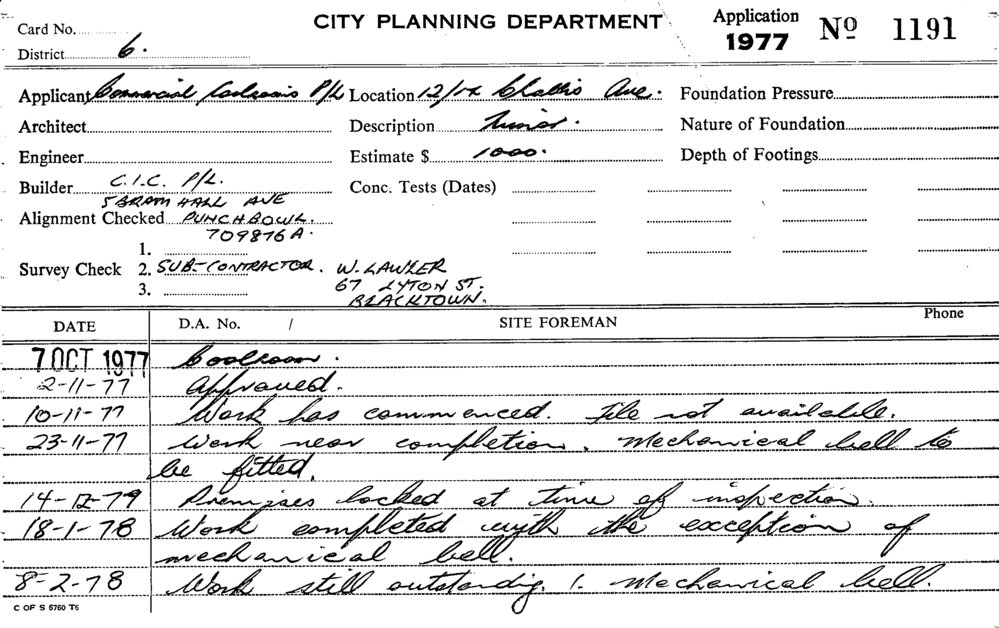 Card No.
CITY PLANNING DEPARTMENT
Application 1977 No 1191
District 6.
Applicant Commercial Coolrooms P/L Location 12/14 Challis Ave. Foundation Pressure
Architect Description Minor. Nature of Foundation
Engineer Estimate $ 1000. Depth of Footings
Builder C.I.C. P/L. Conc. Tests (Dates)
5 BRAM HALL AVE
Alignment Checked PUNCHBOWL.
709876A.
1.
Survey Check 2. SUB-CONTRACTOR. W. LAWLER
67 LYTON ST.
3. BLACKTOWN.
DATE D.A. No. / SITE FOREMAN Phone
7 OCT 1977 Coolroom.
2-11-77 Approved.
10-11-77 Work has commenced. File not available.
23-11-77 Work near completion. Mechanical bell to
be fitted.
14-12-79 Premises locked at time of inspection.
18-1-78 Work completed with the exception of
mechanical bell.
8-2-78 Work still outstanding 1. Mechanical bell.
C OF S 5760 T6